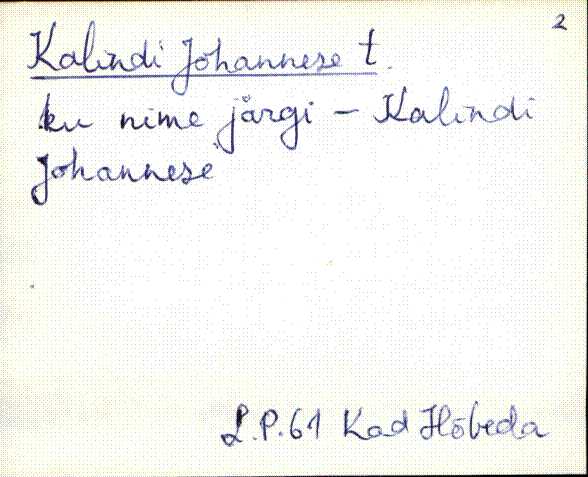 2
Kalindi Johannese t.
ku nime järgi – Kalindi
Johannese
L.P.61 Kad Hõbeda